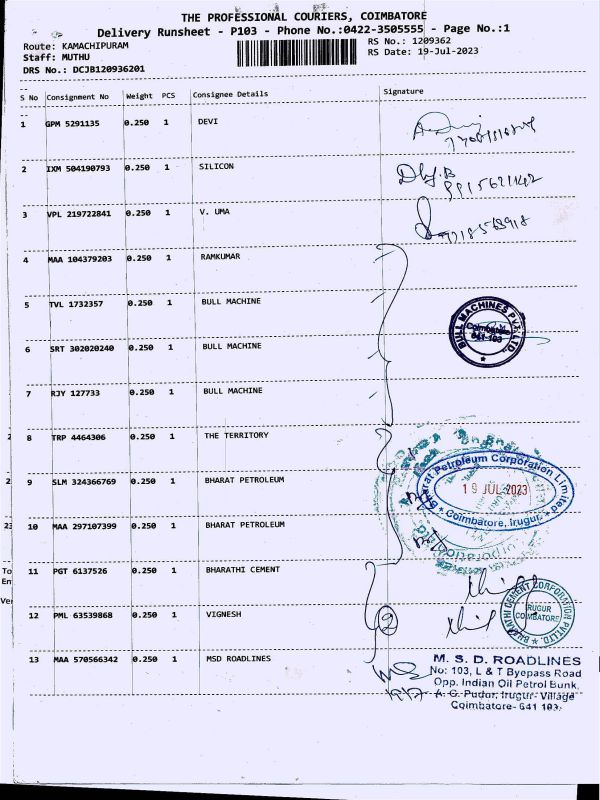 THE PROFESSIONAL COURIERS, COIMBATORE
Delivery Runsheet - P103 - Phone No.:0422-3505555 - Page No.:1
Route: KAMACHIPURAM
RS No.: 1209362
Staff: MUTHU
RS Date: 19-Jul-2023
DRS No.: DCJB120936201
S No Consignment No Weight PCS Consignee Details Signature
1 GPM 5291135 0.250 1 DEVI
2 IXM 504190793 0.250 1 SILICON
3 VPL 219722841 0.250 1 V. UMA
4 MAA 104379203 0.250 1 RAMKUMAR
5 TVL 1732357 0.250 1 BULL MACHINE
BULL MACHINES PVT. LTD.
Coimbatore
641-103
6 SRT 302020240 0.250 1 BULL MACHINE
7 RJY 127733 0.250 1 BULL MACHINE
8 TRP 4464306 0.250 1 THE TERRITORY
9 SLM 324366769 0.250 1 BHARAT PETROLEUM
Bharat Petroleum Corporation Limited
19 JUL 2023
Coimbatore, Irugur.
10 MAA 297107399 0.250 1 BHARAT PETROLEUM
11 PGT 6137526 0.250 1 BHARATHI CEMENT
BHARATHI CEMENT CORPORATION PVT LTD.
RUGUR
COIMBATORE
12 PML 63539868 0.250 1 VIGNESH
2
13 MAA 570566342 0.250 1 MSD ROADLINES
M. S. D. ROADLINES
No: 103, L & T Byepass Road
Opp. Indian Oil Petrol Bunk,
A. G. Pudur, Irugur- Village
Coimbatore- 641 103.